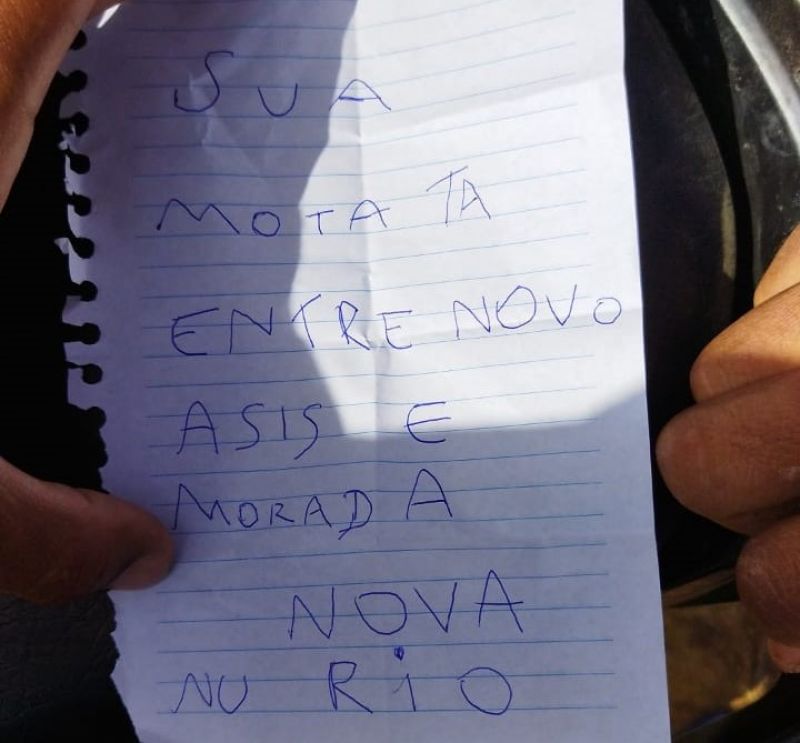 SUA
MOTA TA
ENTRE NOVO
ASIS E
MORADA
NOVA
NU RiO